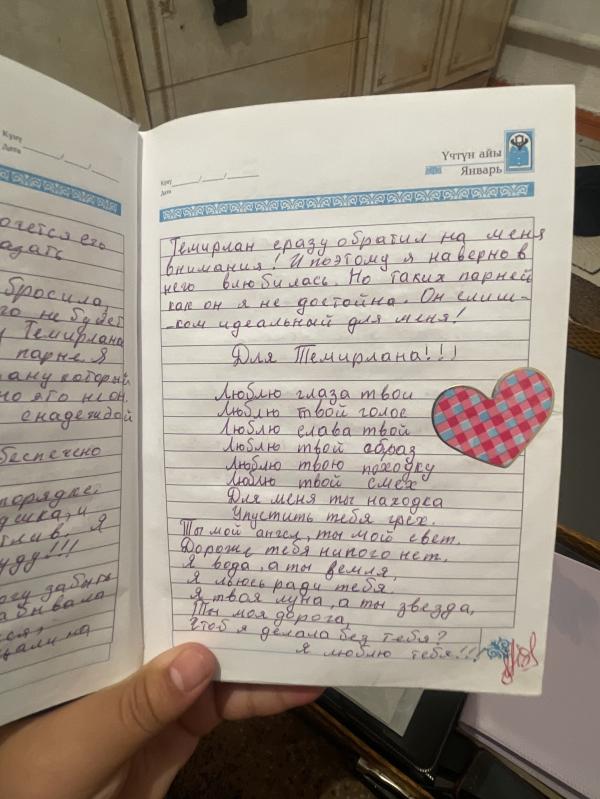 Күнү
Дата
очется его
адать
бросила
го не будет
у Темирлана
парне. Я
ану который
но это не он.
с надеждой
беспечено
порядке,
душка, и
тлив. Я
уду!!!
огу забыть
абывала
ся,
щали на
Үчтүн айы
Январь
Күнү
Дата
Темирлан сразу обратил на меня
внимания! И поэтому я наверно в
него влюбилась. Но таких парней
как он я не достойна. Он слиш-
-ком идеальный для меня!
Для Темирлана!!!
Люблю глаза твои
Люблю твой голос
Люблю слава твой
Люблю твой образ
Люблю твою походку
Люблю твой смех
Для меня ты находка
Упустить тебя грех.
Ты мой ангел, ты мой свет.
Дороже тебя никого нет.
Я вода, а ты земля,
Я льюсь ради тебя.
Я твая луна, а ты звезда,
Ты моя дорога,
Чтоб я делала без тебя?
Я люблю тебя!!!